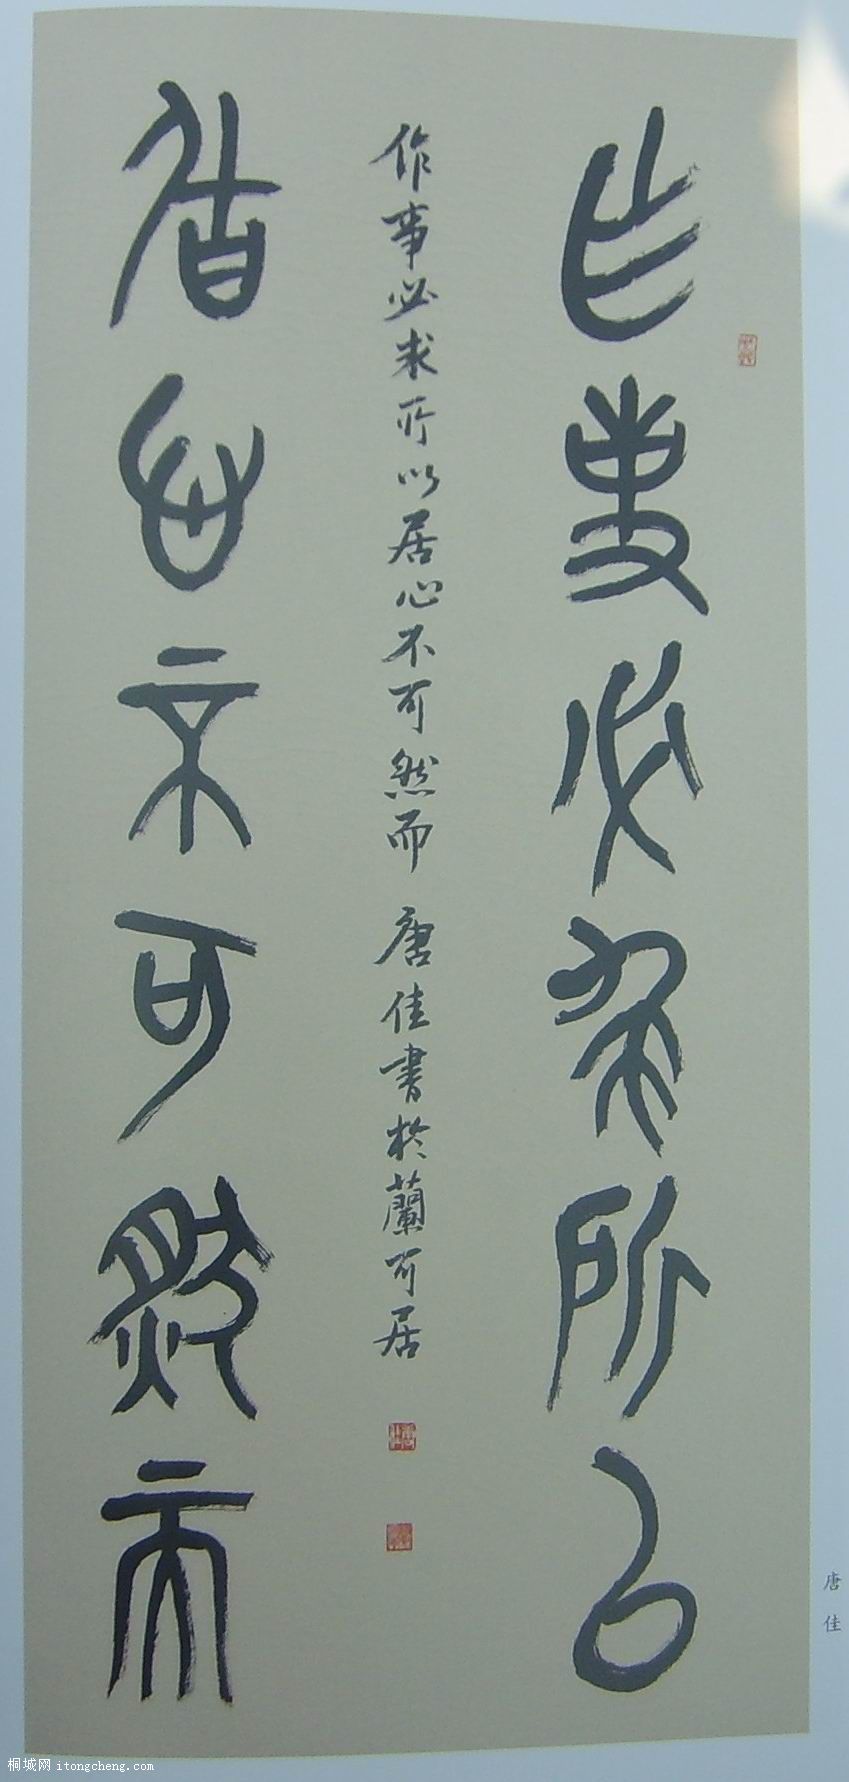 作事必求所以
居心不可然而
作事必求所以居心不可然而 唐佳書於蘭可居
唐佳
桐城网 itongcheng.com